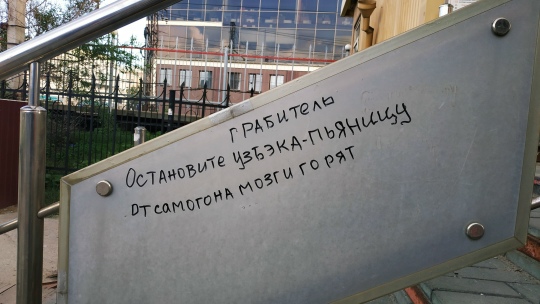 ГРАБИТЕЛЬ
ОСТАНОВИТЕ УЗЪЭКА-ПЬЯНИЦУ
ОТ САМОГОНА МОЗГИ ГОРЯТ